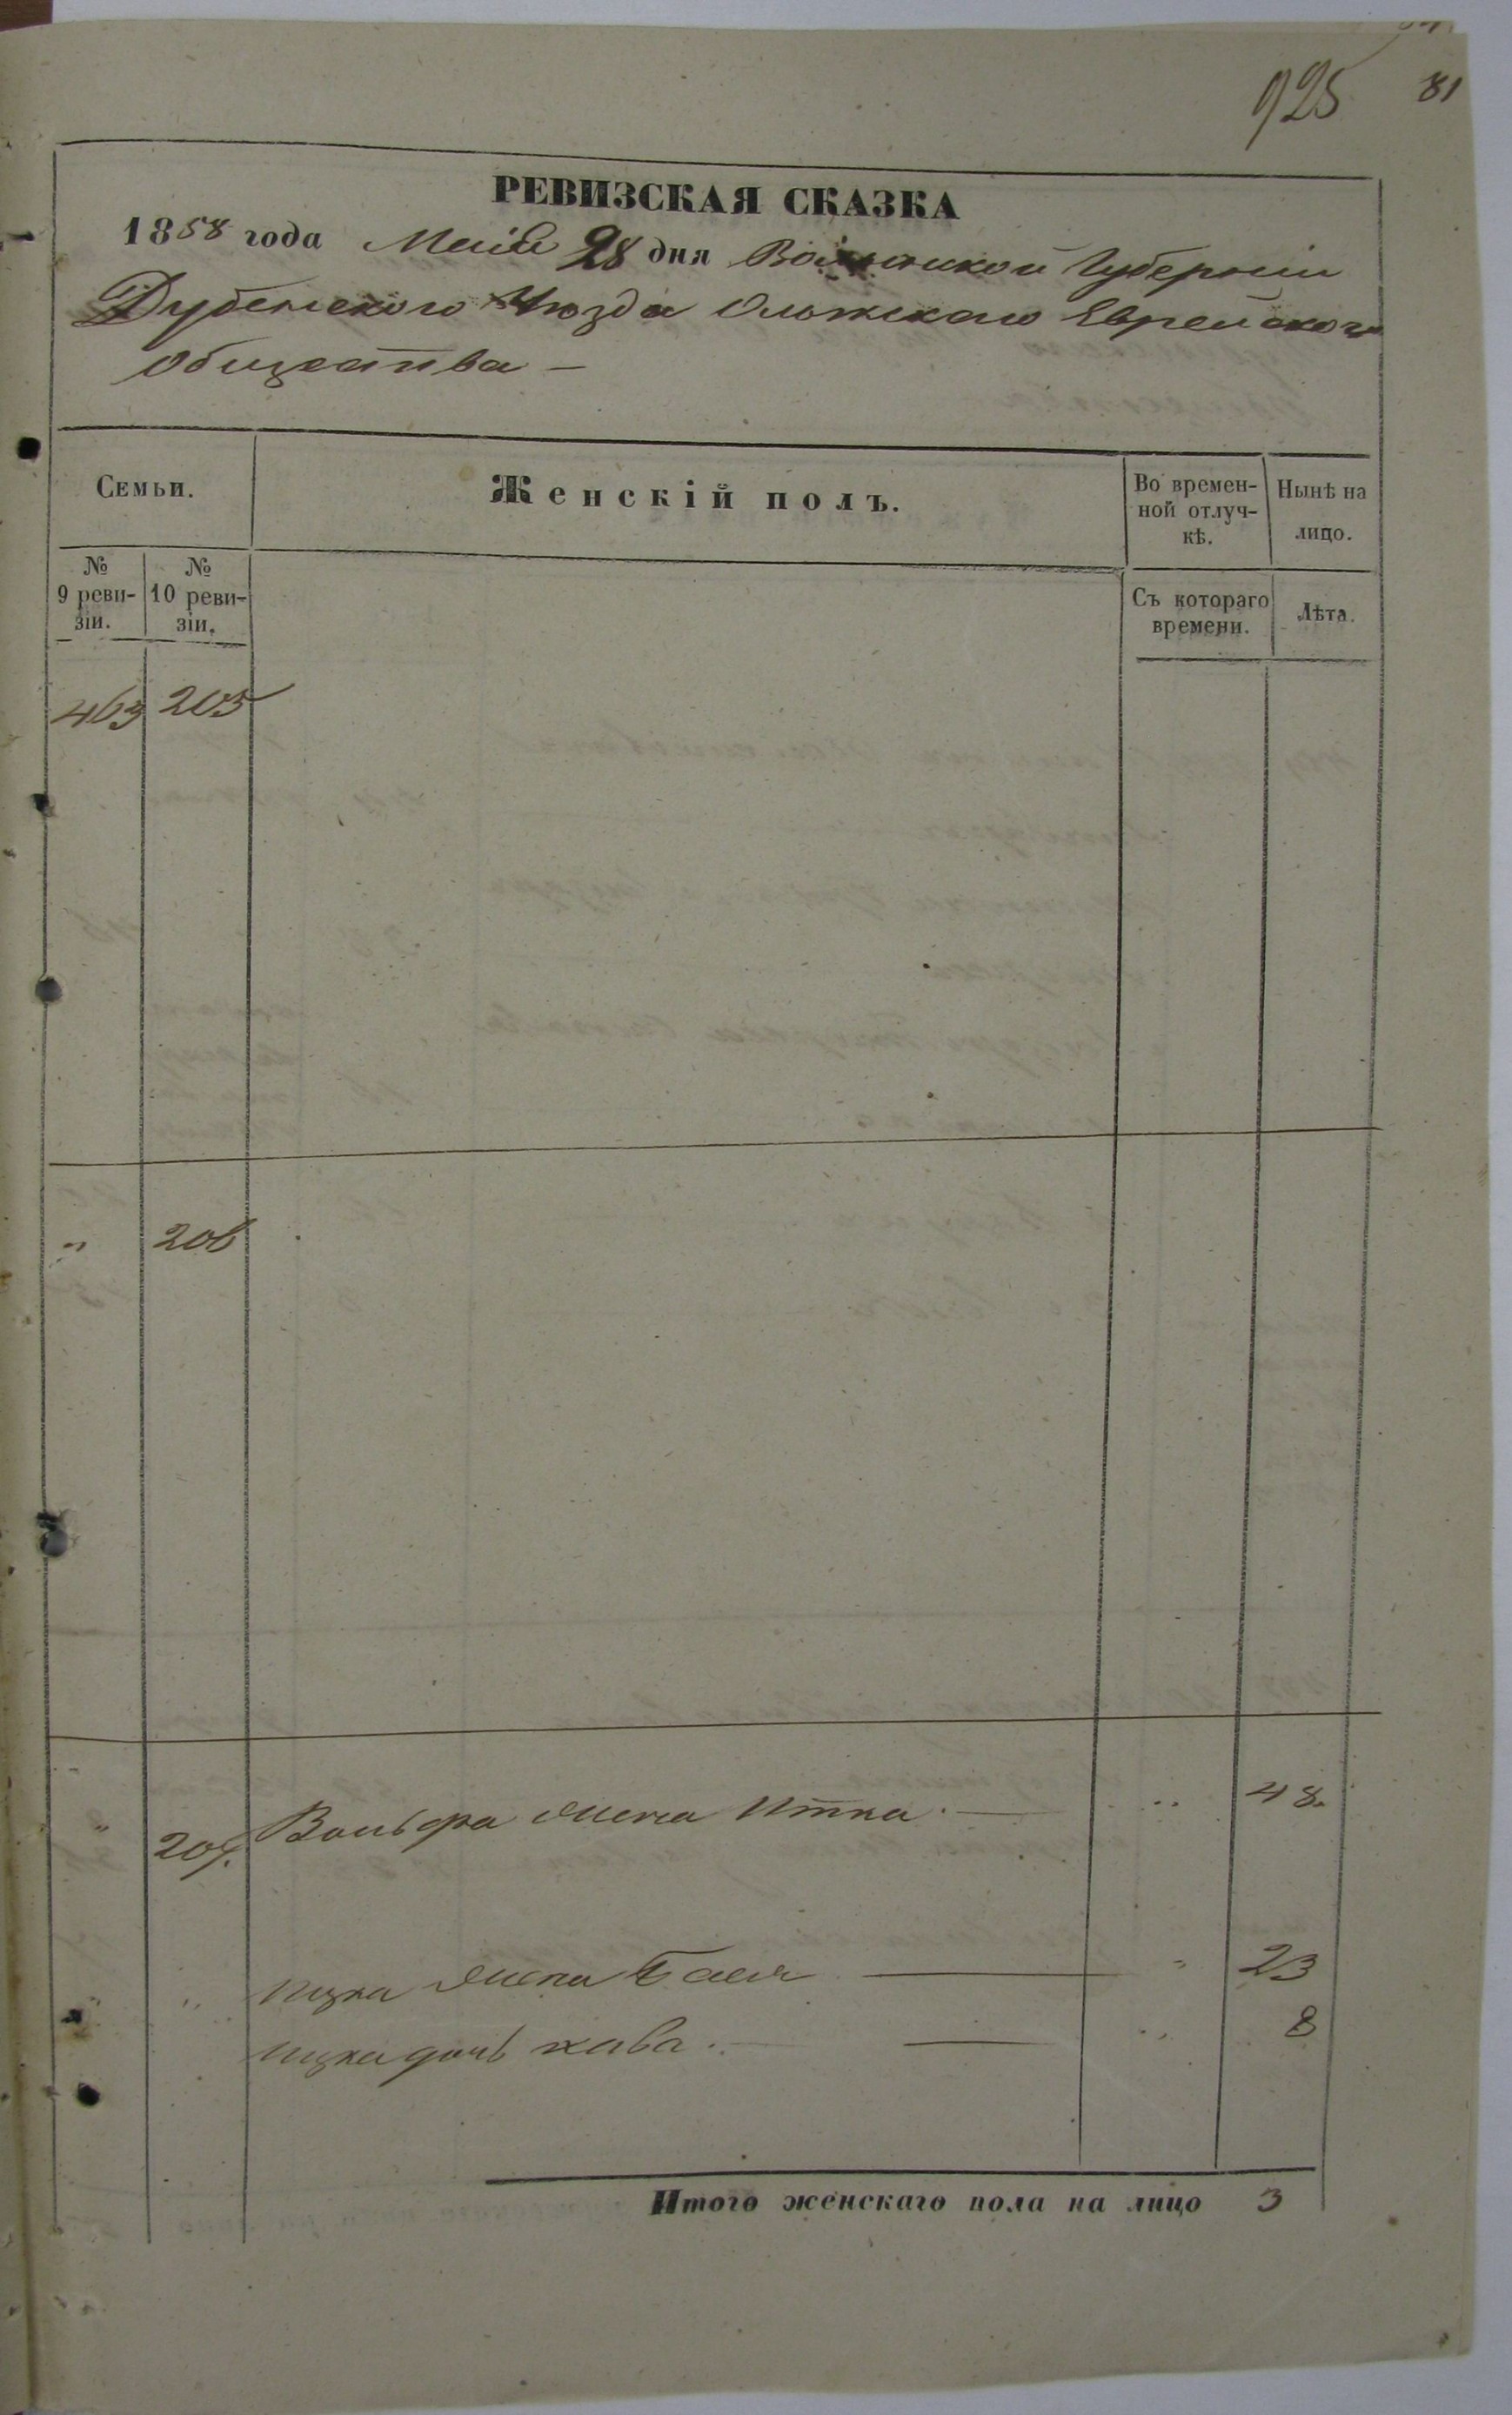 925 81
РЕВИЗСКАЯ СКАЗКА
1858 года Маія 28 дня Волынской Губерніи
Дубенского Уюзда Олыжскаго Еврейского
Общества —
Семьи. Женскій полъ. Во времен-ной отлуч-кѣ. Нынѣ на лицо.
№ 9 реви-зіи. № 10 реви-зіи. Съ котораго времени. Лѣта.
463 205
" 206
" 207. Вольфа жена Итка. — " 48.
" " Ицка жена Бася — " 23
Ицка дочь хава. — " 8
Итого женскаго пола на лицо 3